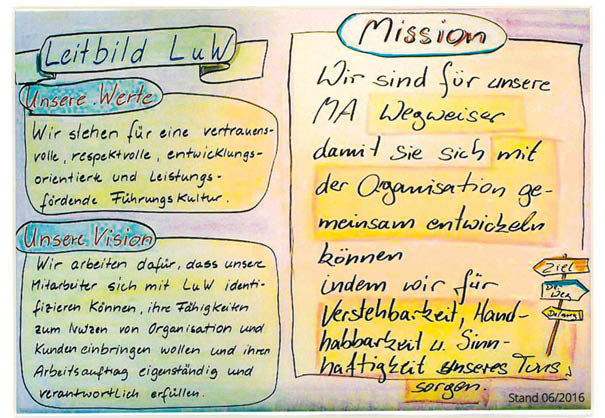 Leitbild LuW
Unsere Werte
Wir stehen für eine vertrauens-
volle, respektvolle, entwicklungs-
orientierte und Leistungs-
fördende Führungskultur.
Unsere Vision
Wir arbeiten dafür, dass unsere
Mitarbeiter sich mit LuW identi-
fizieren können, ihre Fähigkeiten
zum Nutzen von Organisation und
Kunden einbringen wollen und ihren
Arbeitsauftrag eigenständig und
verantwortlich erfüllen.
Mission
Wir sind für unsere
MA Wegweiser
damit sie sich mit
der Organisation ge-
meinsam entwickeln
können
indem wir für
Verstehbarkeit, Hand-
habbarkeit u. Sinn-
haftigkeit unseres Tuns
sorgen.
Ziel
Der
Weg
Stand 06/2016